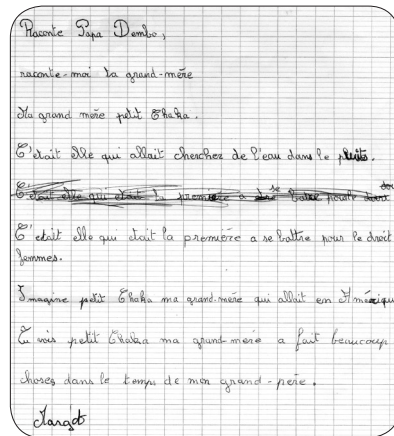 Raconte Papa Dembo,
raconte-moi ta grand-mère
Ma grand mère petit Chaka.
C'était elle qui allait chercher de l'eau dans le puits.
C'était elle qui était la première a se battre pour le droit
C'était elle qui était la première a se battre pour le droit
femmes.
Imagine petit Chaka ma grand-mère qui allait en Amérique
Tu vois petit Chaka ma grand-mère a fait beaucoup
choses dans le temps de mon grand-père.
Margot